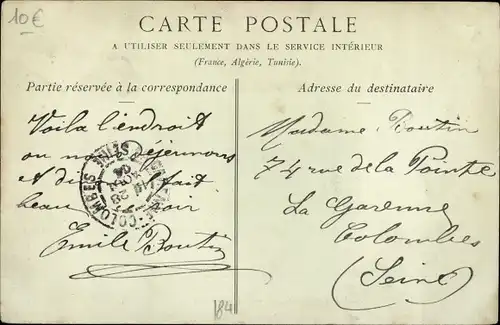 10€
CARTE POSTALE
A UTILISER SEULEMENT DANS LE SERVICE INTÉRIEUR
(France, Algérie, Tunisie).
Partie réservée à la correspondance
Voila l'endroit
ou nous déjeunons
et il fait
beau ce soir
Emile Boutin
COLOMBES
Adresse du destinataire
Madame Boutin
74 rue de la Pointe
La Garenne
Colombes
(Seine)
184